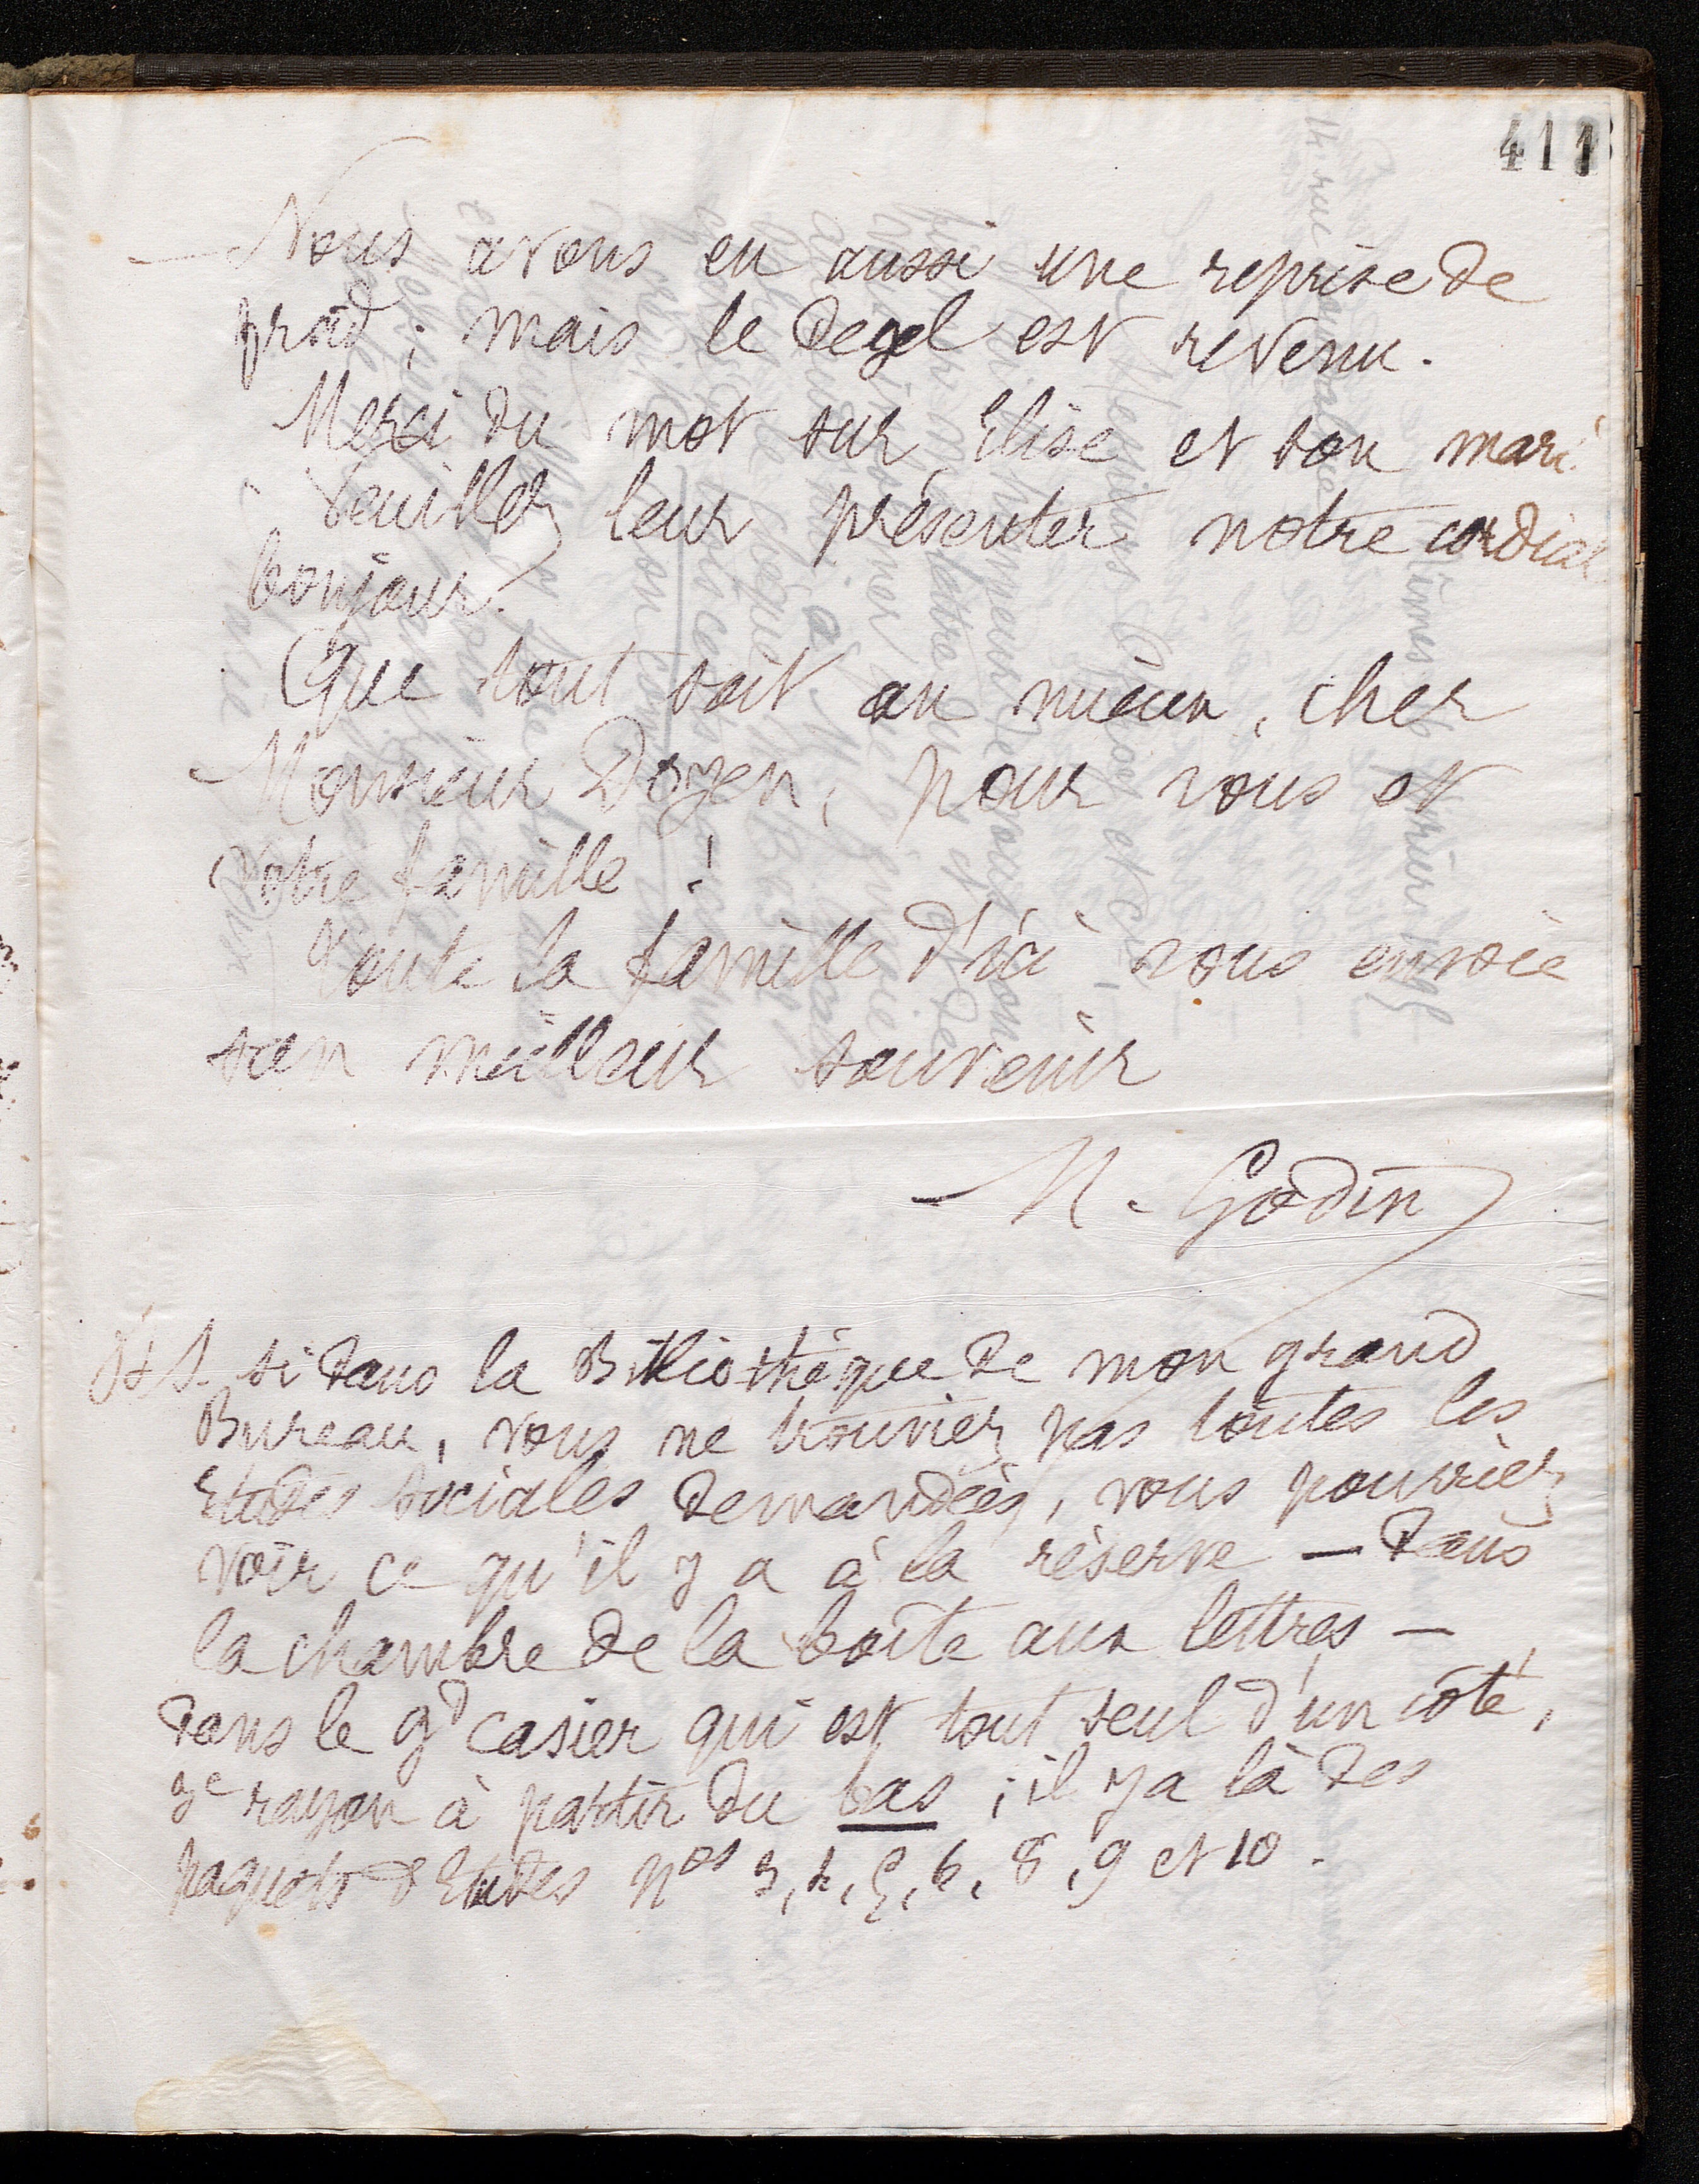 411
Nous avons eu aussi une reprise de
froid ; mais le degel est revenu.
Merci du mot sur Elise et son mari.
Veuillez leur présenter notre cordial
bonjour.
Que tout soit au mieux, cher
Monsieur Doyen, pour vous et
votre famille !
Toute la famille d'ici vous envoie
son meilleur souvenir
M. Godin
P.S. Si dans la Bibliothèque de mon grand
Bureau, vous ne trouviez pas toutes les
Etudes sociales demandées, vous pourriez
voir ce qu'il y a à la réserve — dans
la chambre de la boîte aux lettres —
dans le gd casier qui est tout seul d'un côté,
rayon à partir du bas ; il y a là des
paquets d'Etudes nos 3, 4, 5, 6, 8, 9 et 10.